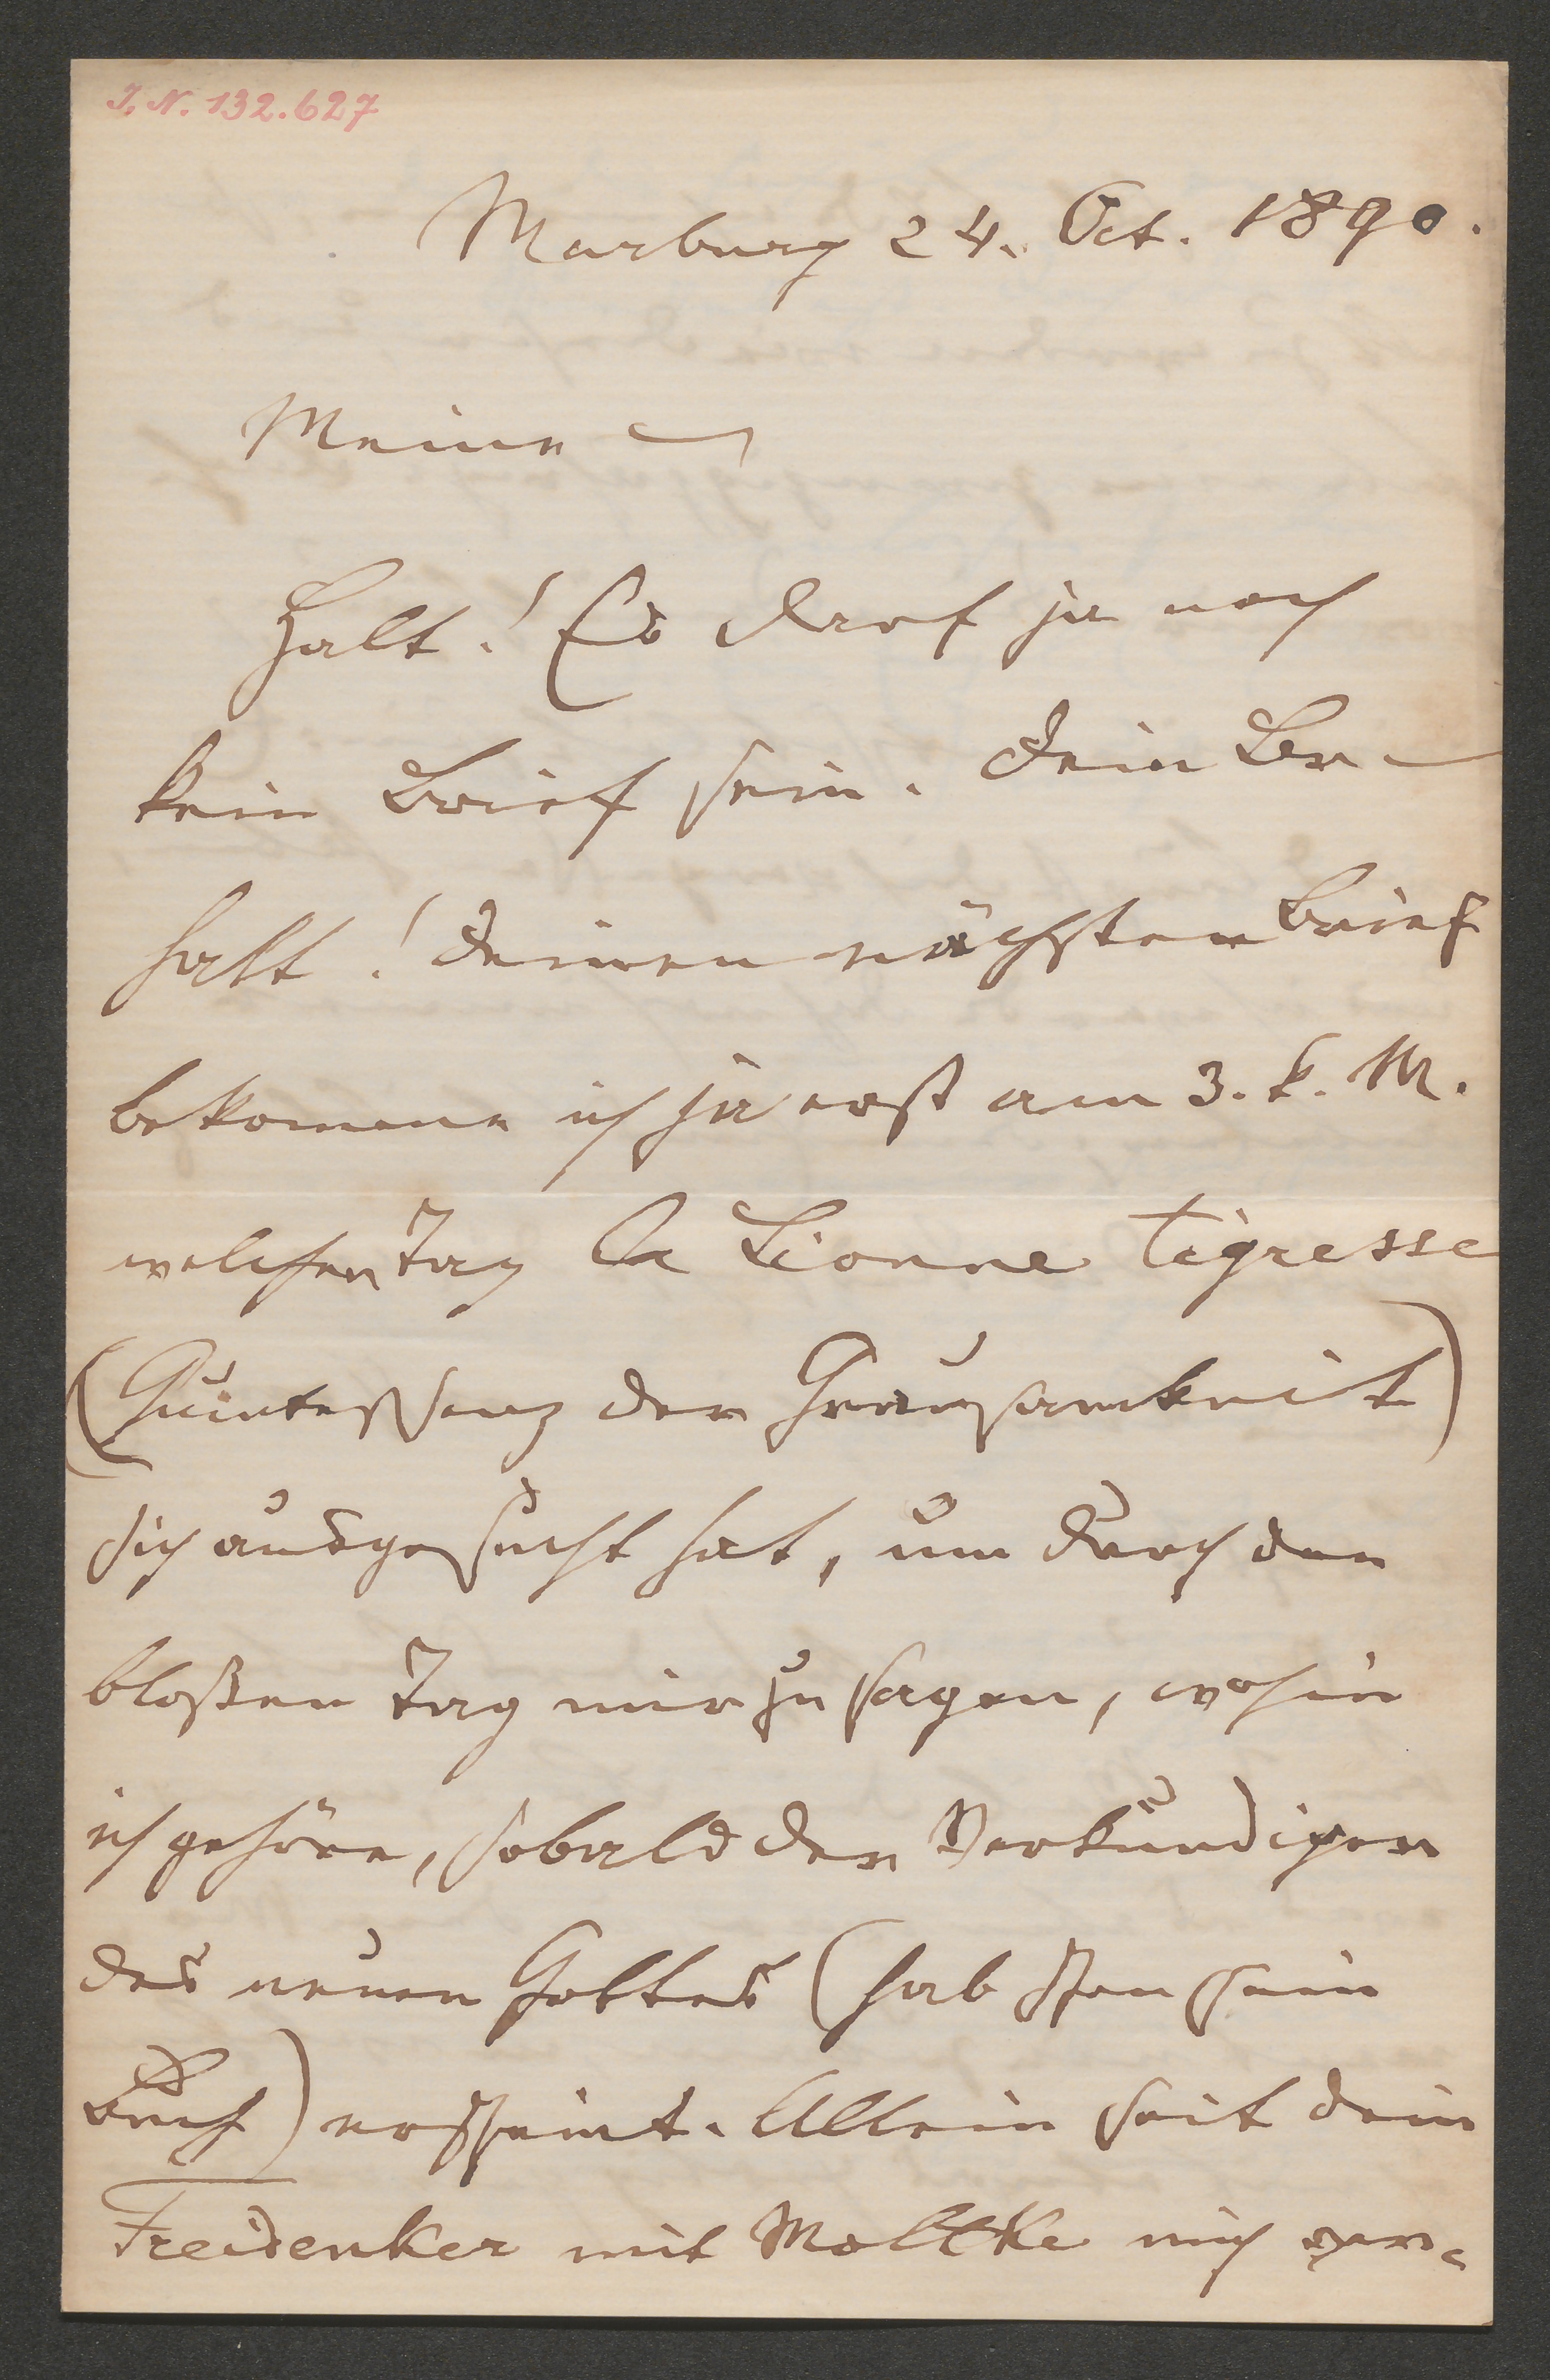 I. N. 132.627
Marburg 24. Oct. 1890.
Meine —
Halt! Es darf ja noch
kein Brief sein. Dein Be-
halt! Deinen nächsten Brief
bekomme ich ja erst am 3. k. M.
welchen Tag la Lionne tigresse
(Quintessenz der Grausamkeit)
sich ausgesucht hat, um durch den
bloßen Tag mir zu sagen, wohin
ich gehöre, sobald der Verkündiger
des neuen Gottes (hab schon sein
Buch) erscheint. Allein seit dein
Freidenker mit Moltke mich